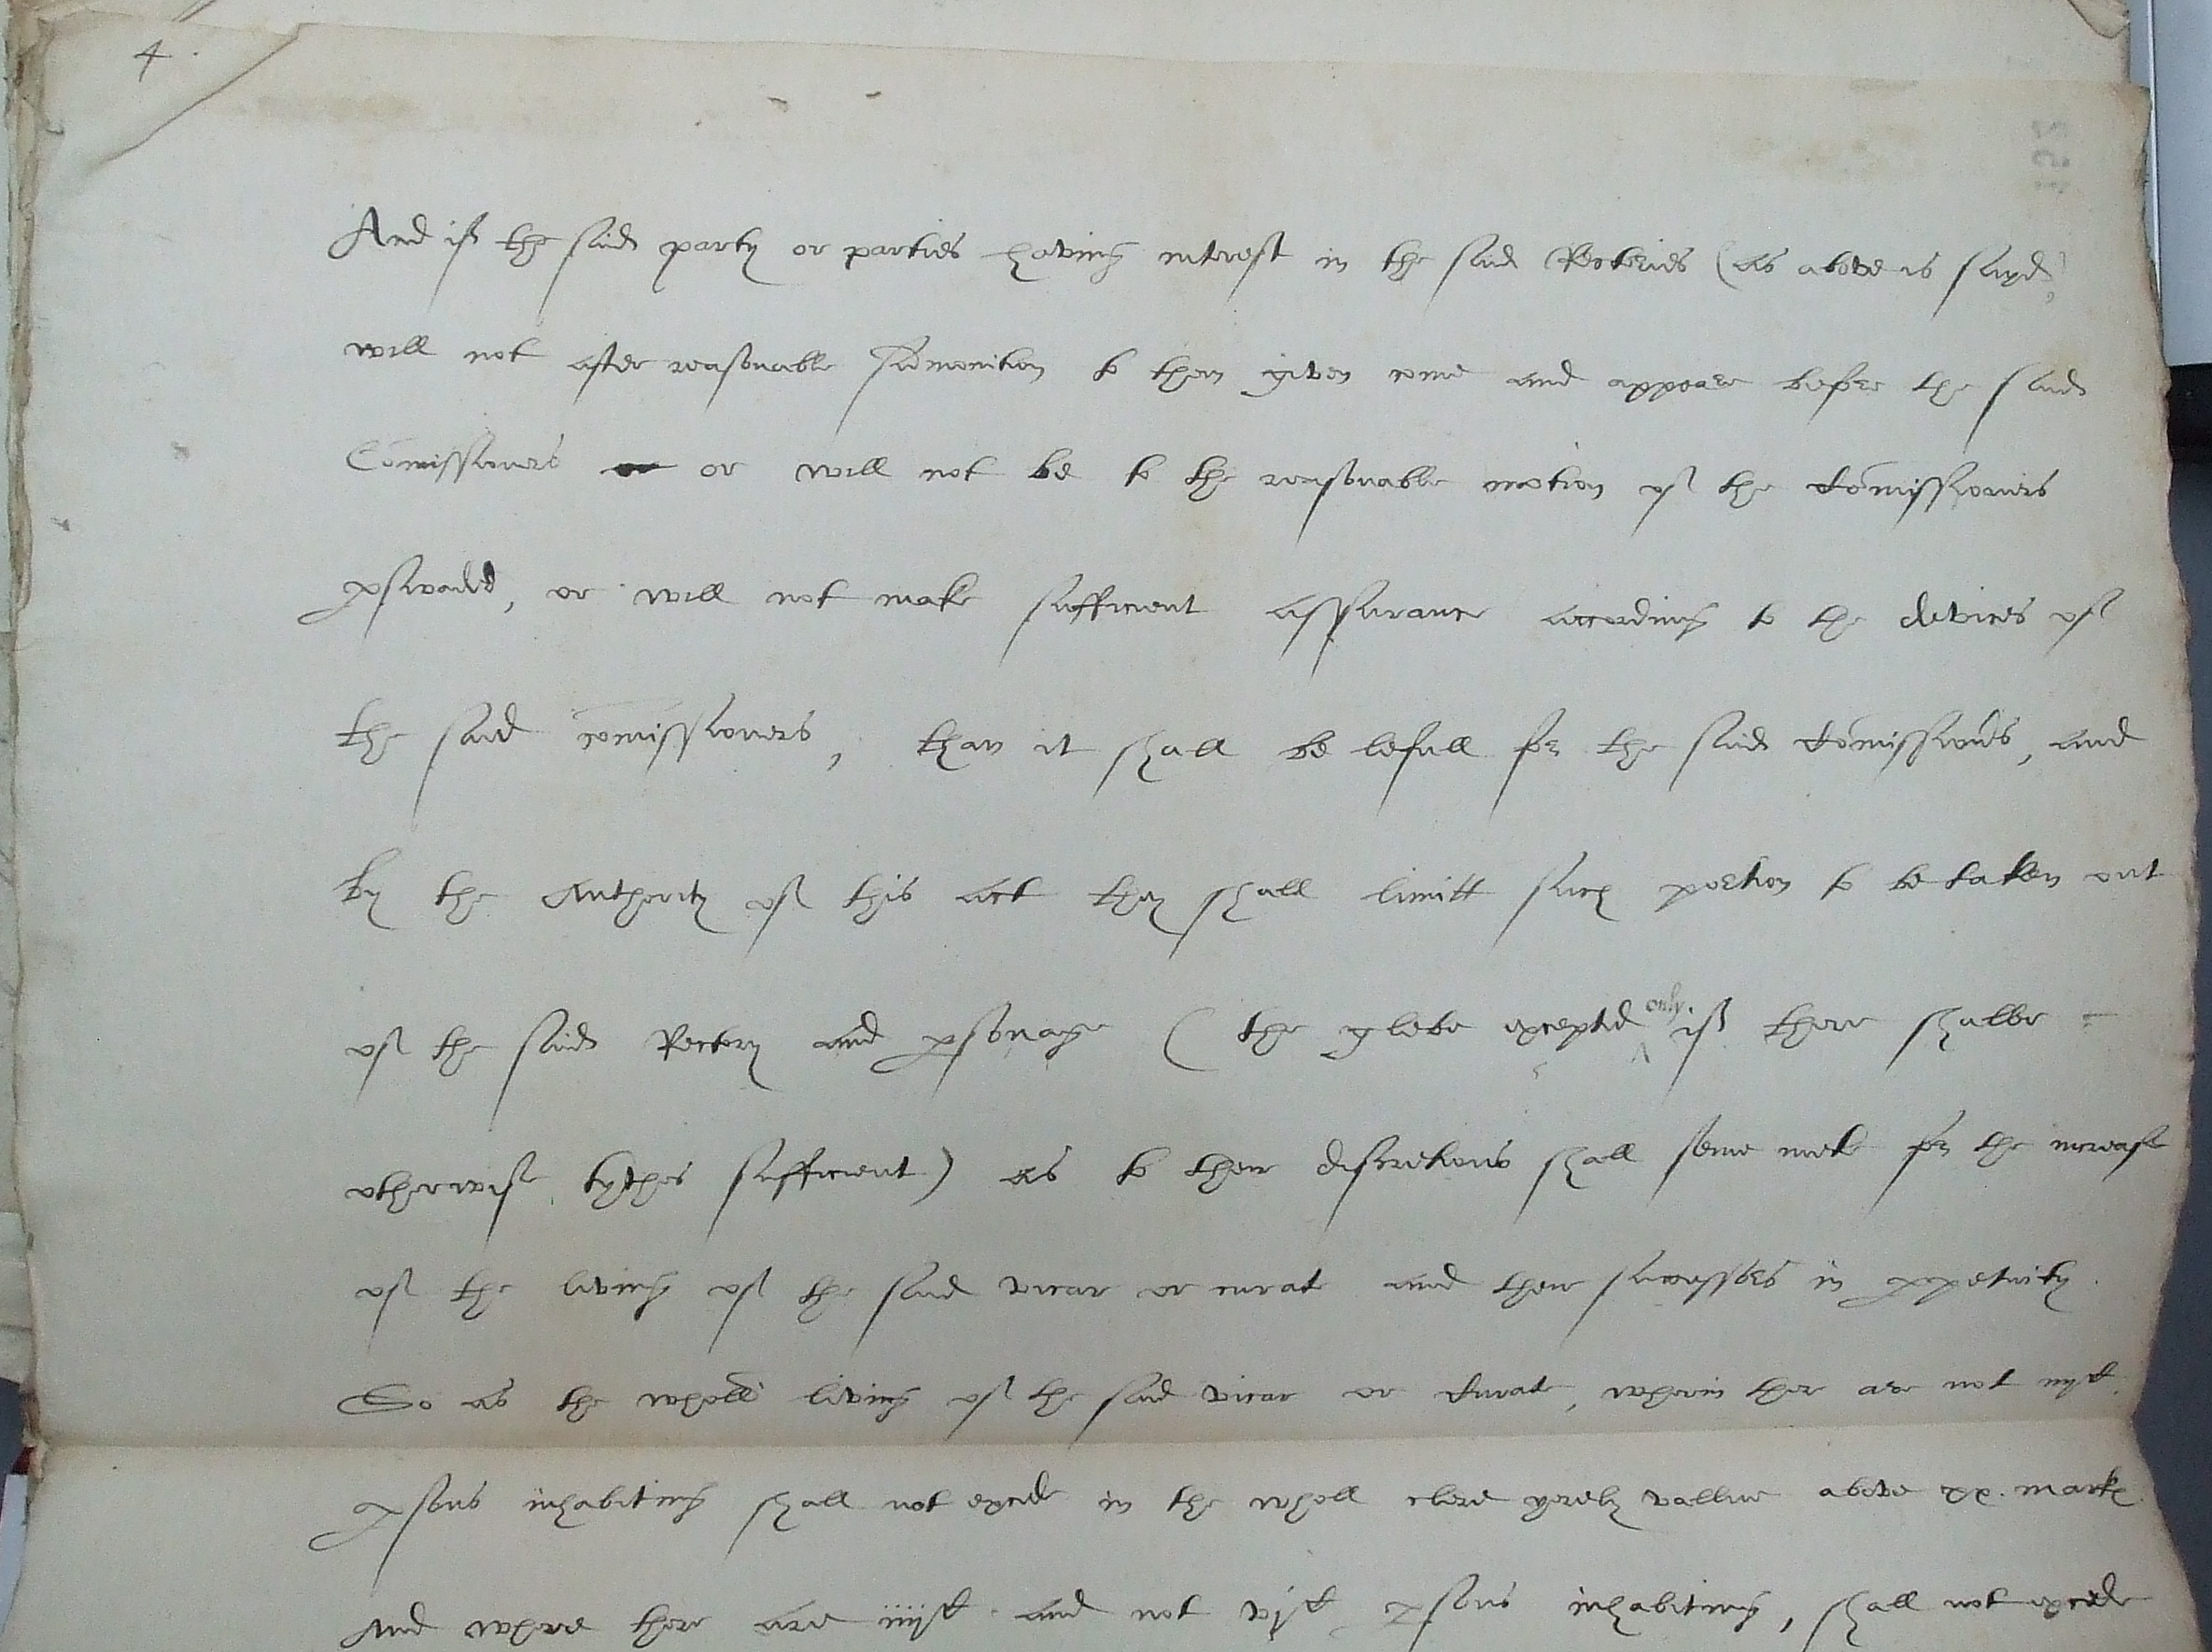 4.
And if the said party or parties having interest in the said Rectories (as above is sayd)
will not after reasonable admonition to them given come and appeare before the said
Comissioners or or will not be to the reasonable motion of the Comissioners
pswaded, or will not make sufficient assurance according to the devices of
the said comissioners, than it shall be lefull for the said Comissioners, and
by the Authority of this act they shall limitt such portion to be taken out
of the said Rectory and psonage ( the glebe excepted only if there shalbe
otherwise tythes sufficient) as to their discretions shall seme mete for the increase
of the living of the said vicar or curate and their successors in ppetuity.
So as the wholl living of the said vicar or Curate, wherin ther are not
psons inhabiting shall not excede in the wholl clere yerely vallue above xx. marks
And where there are iiijc and not vjc psons inhabiting, shall not excede